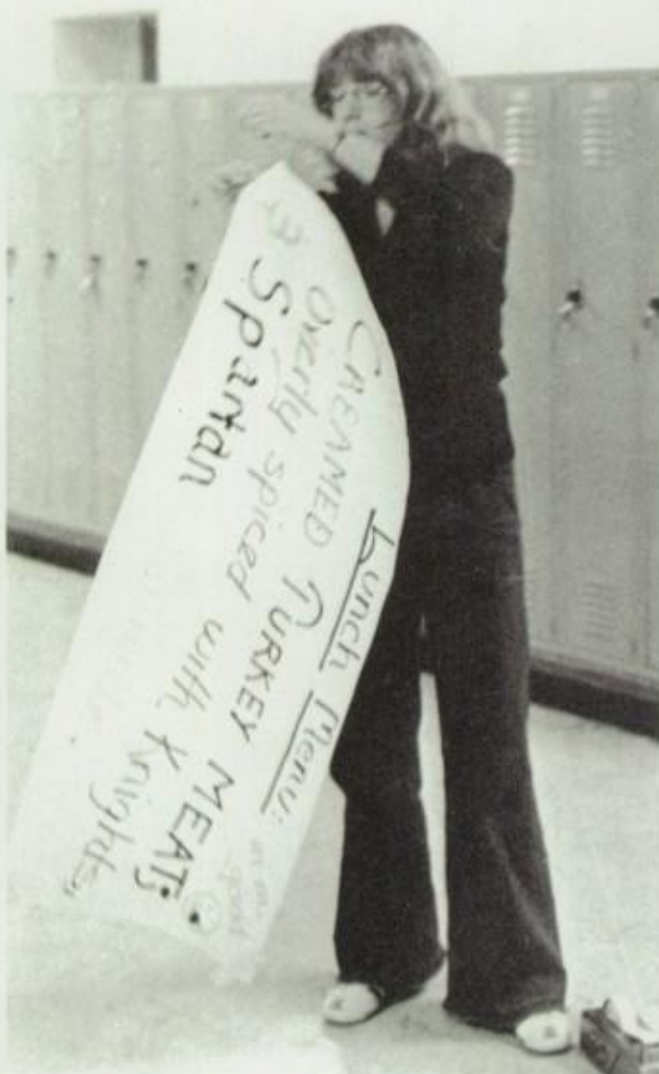 Lunch Menu:
CREAMED TURKEY MEAT;
Overly spiced with Knights,
Spartan